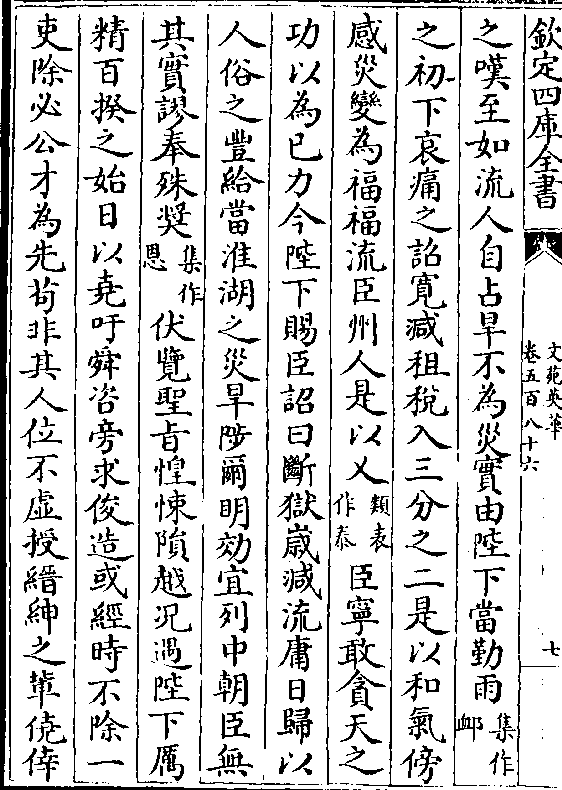 欽定四庫全書
文苑英華
卷五百八十六
七
之嘆至如流人自占旱不為災實由陛下當勤雨集作䘏
之初下哀痛之詔寛減租稅入三分之二是以和氣傍
感災變為福福流臣州人是以乂類表作泰臣寧敢貪天之
功以為已力今陛下賜臣詔曰斷獄嵗減流庸日歸以
人俗之豐給當淮湖之災旱陟爾明効宜列中朝臣無
其實謬奉殊奨集作恩伏覽聖㫖惶悚隕越况遇陛下厲
精百揆之始日以堯吁舜咨旁求俊造或經時不除一
吏除必公才為先茍非其人位不虛授縉紳之軰僥倖